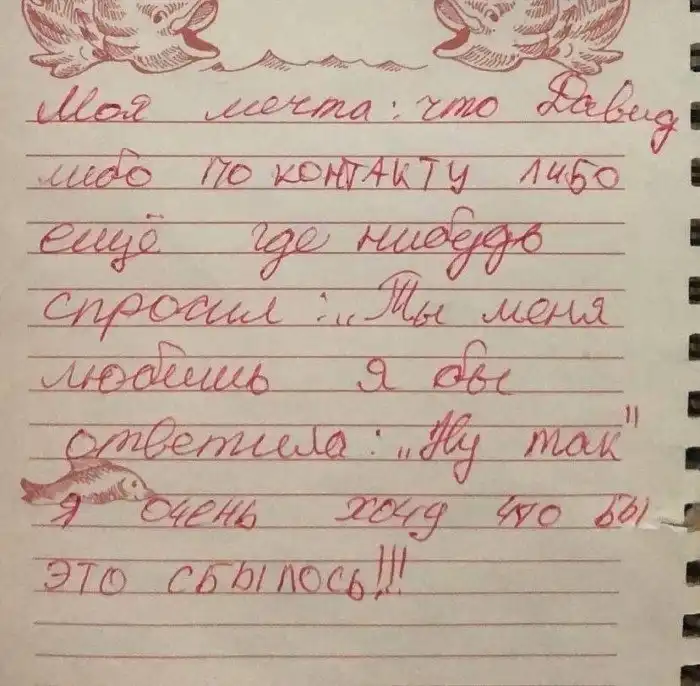 Моя мечта: что Давид
либо по контакту либо
ещё где нибудь
спросил: „Ты меня
любишь я бы
ответила: „Ну так"
я очень хочу что бы
это сбылось!!!